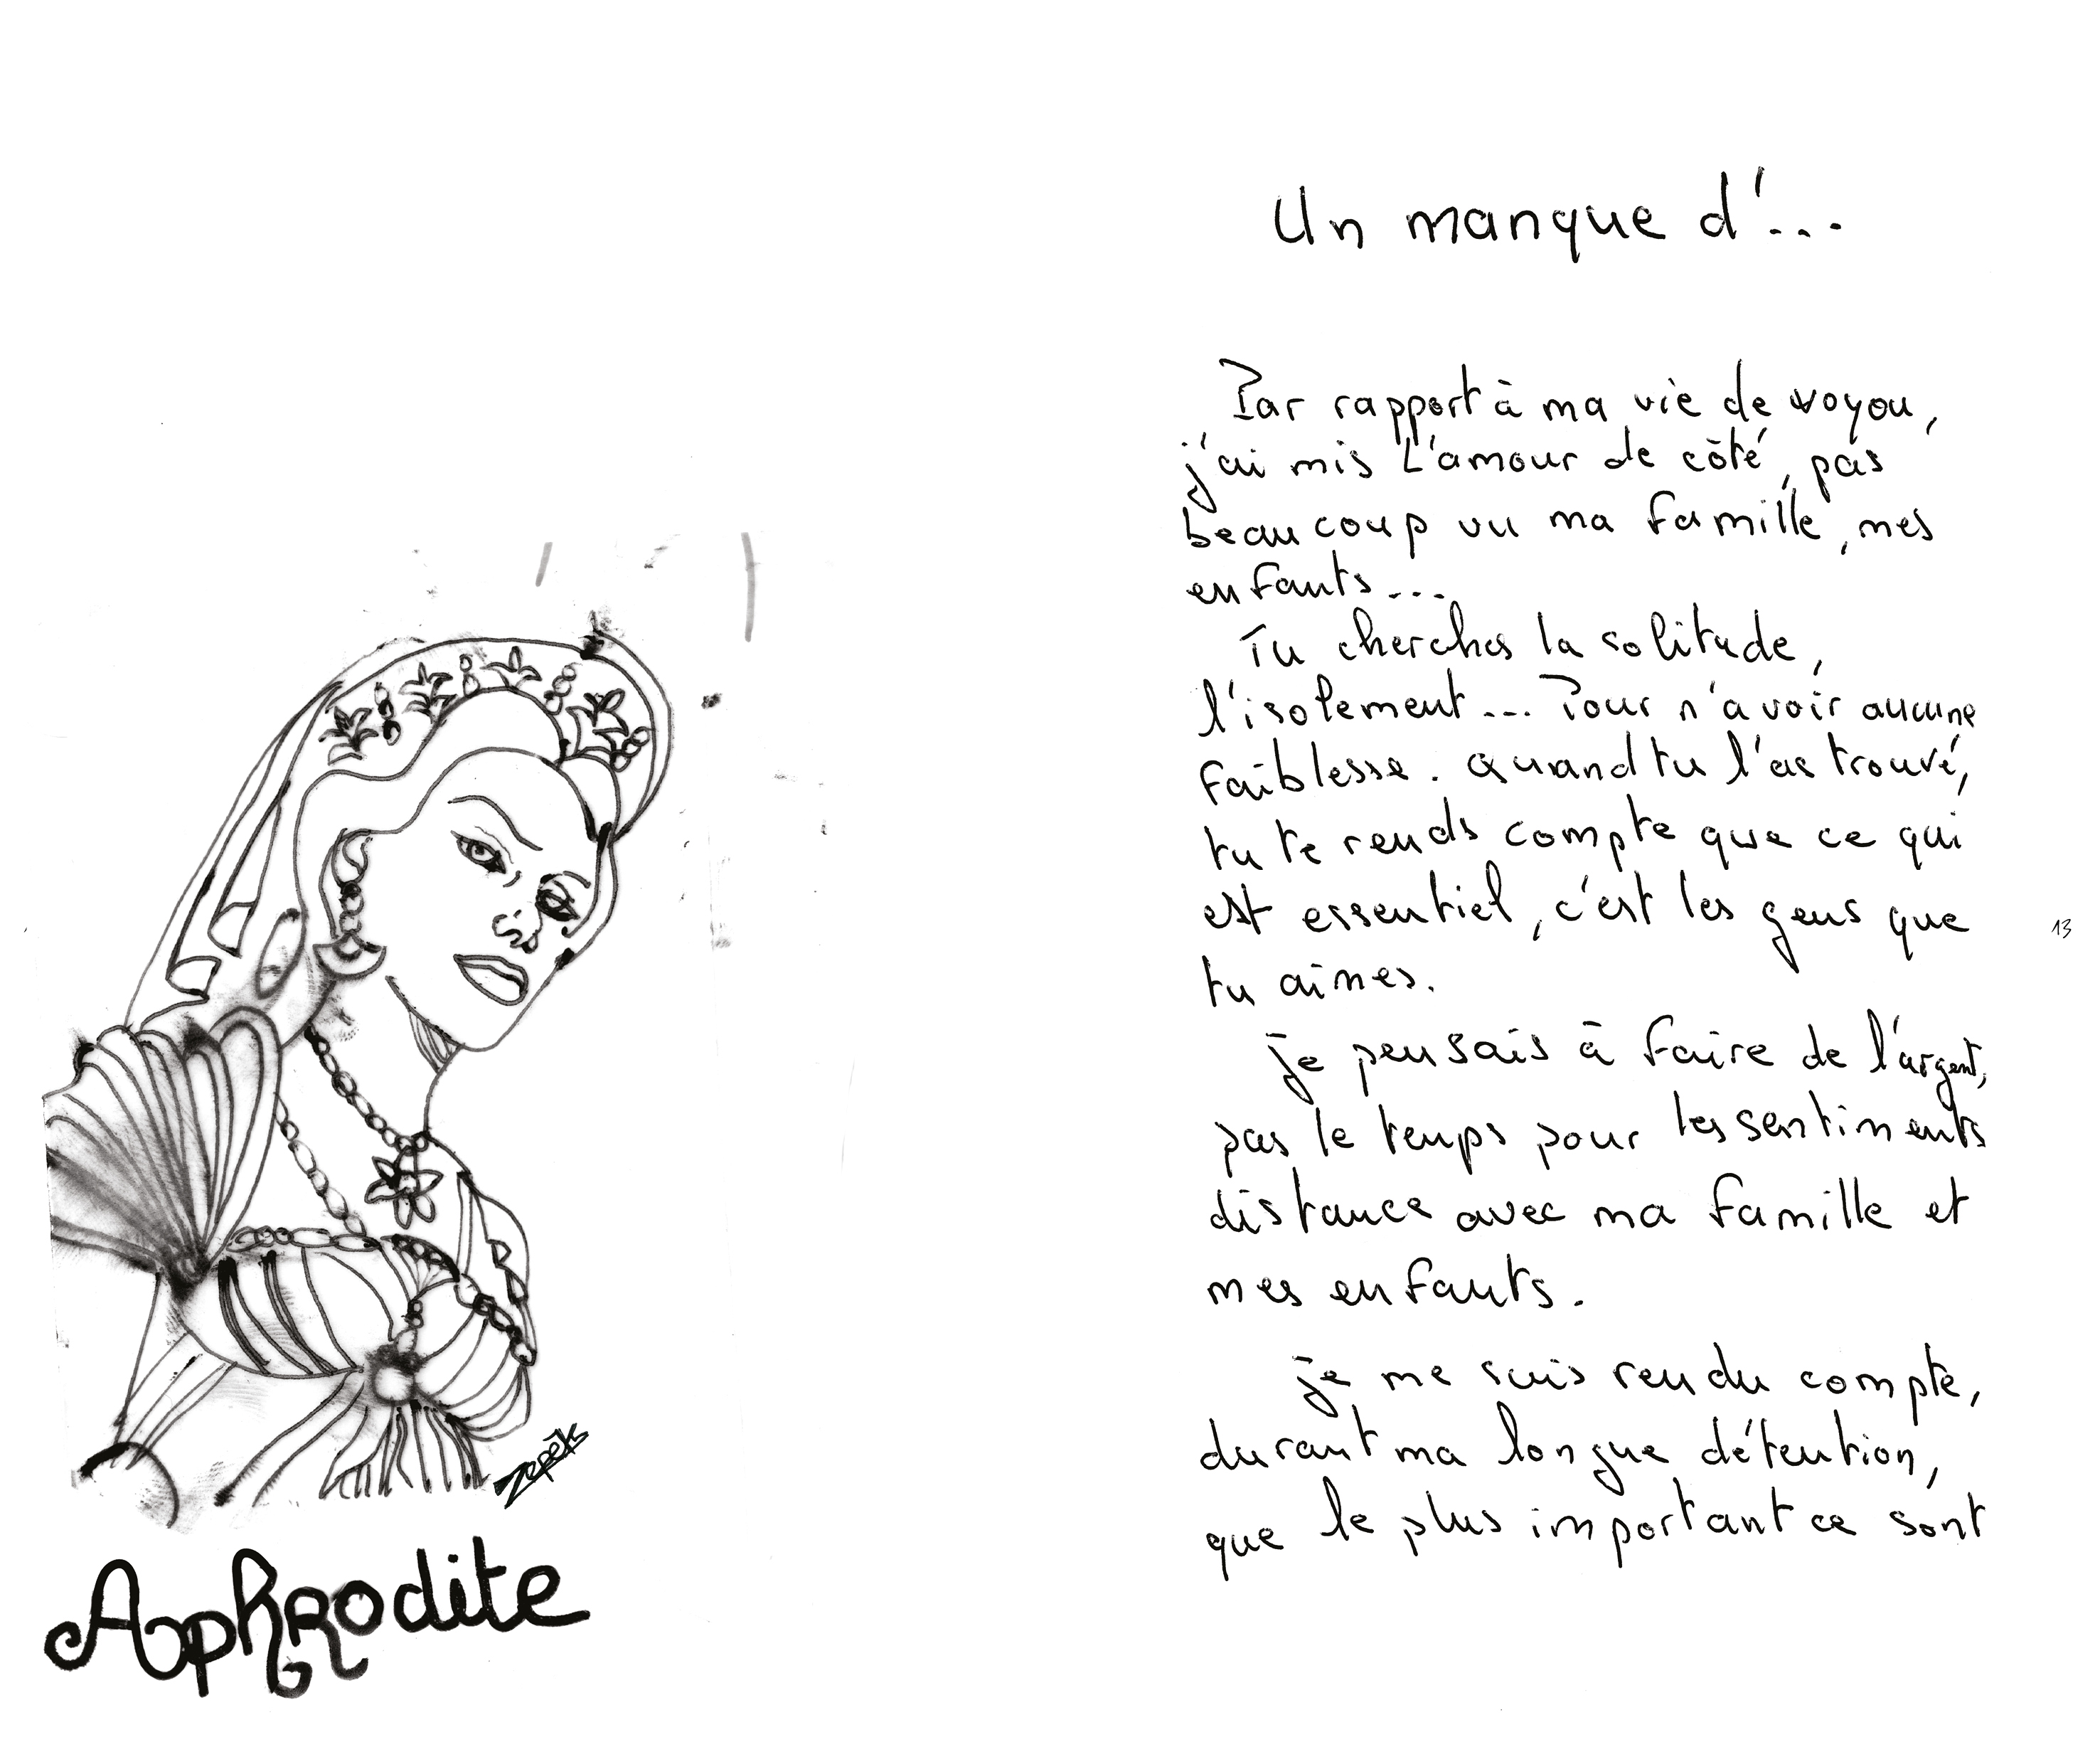 Zepek
Aphrodite
Un manque d'...
Par rapport à ma vie de voyou,
j'ai mis L'amour de côté, pas
beaucoup vu ma famille, mes
enfants...
Tu cherches la solitude,
l'isolement... Pour n'avoir aucune
faiblesse. Quand tu l'as trouvé,
tu te rends compte que ce qui
est essentiel, c'est les gens que
tu aimes.
je pensais à faire de l'argent,
pas le temps pour les sentiments
distance avec ma famille et
mes enfants.
je me suis rendu compte,
durant ma longue détention,
que le plus important ce sont
13